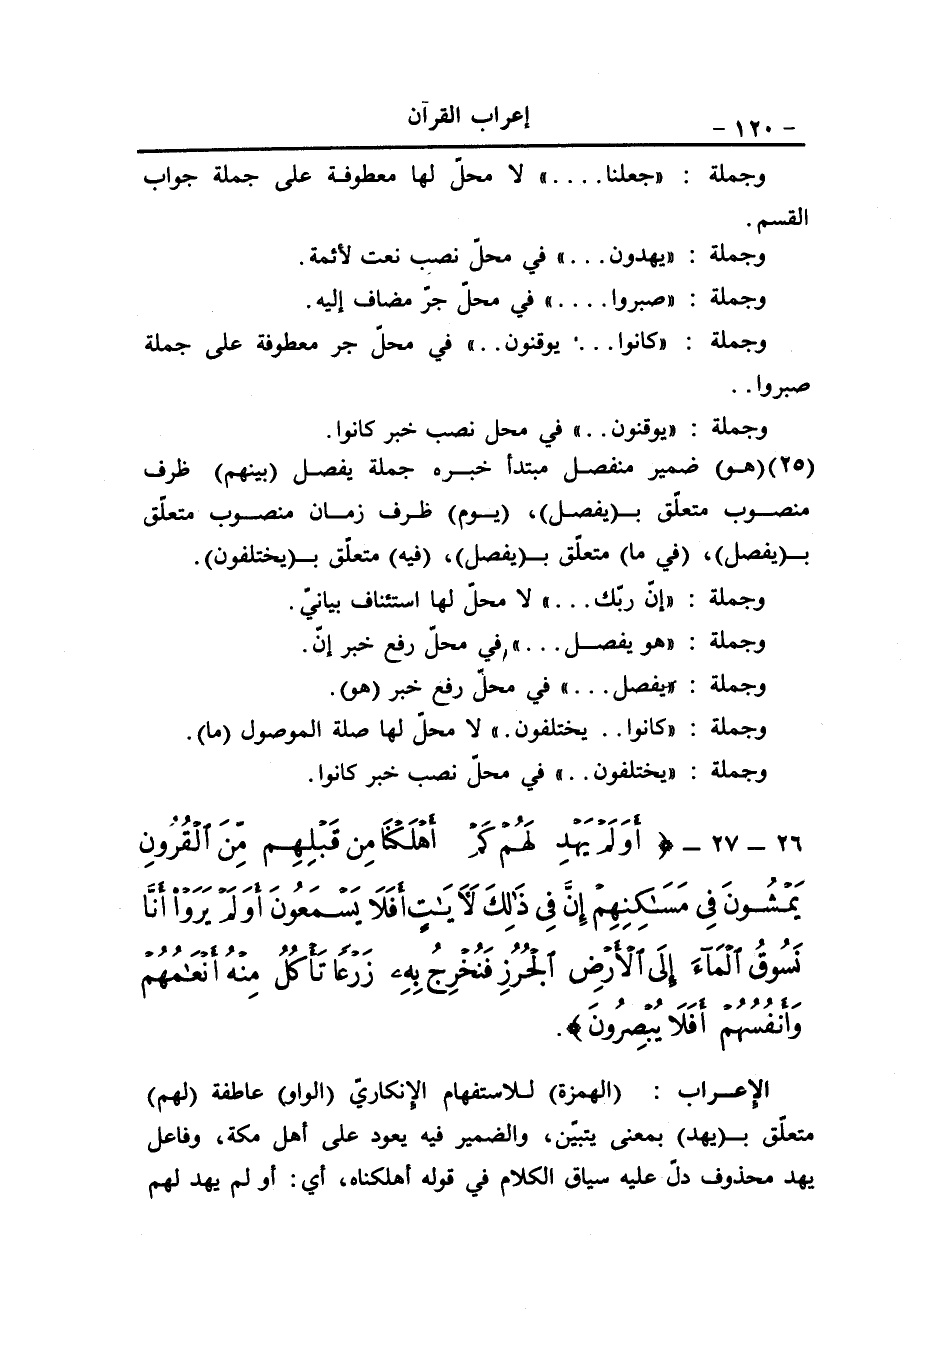 - ١٢٠ -
إعراب القرآن
وجملة : «جعلنا....» لا محلّ لها معطوفة على جملة جواب
القسم.
وجملة : «يهدون...» في محلّ نصب نعت لأئمة.
وجملة : «صبروا....» في محلّ جرّ مضاف إليه.
وجملة : «كانوا... يوقنون..» في محلّ جر معطوفة على جملة
صبروا..
وجملة : «يوقنون..» في محل نصب خبر كانوا.
(٢٥)(هو) ضمير منفصل مبتدأ خبره جملة يفصل (بينهم) ظرف
منصوب متعلّق بـ(يفصل)، (يوم) ظرف زمان منصوب متعلّق
بـ(يفصل)، (في ما) متعلّق بـ(يفصل)، (فيه) متعلّق بـ(يختلفون).
وجملة : «إنّ ربّك...» لا محلّ لها استئناف بيانيّ.
وجملة : «هو يفصل...» في محلّ رفع خبر إنّ.
وجملة : «يفصل...» في محلّ رفع خبر (هو).
وجملة : «كانوا.. يختلفون.» لا محلّ لها صلة الموصول (ما).
وجملة : «يختلفون..» في محلّ نصب خبر كانوا.
٢٦ - ٢٧ - ﴿ أَوَلَمْ يَهْدِ لَهُمْ كَمْ أَهْلَكْنَا مِن قَبْلِهِم مِّنَ ٱلْقُرُونِ
يَمْشُونَ فِى مَسَٰكِنِهِمْ إِنَّ فِى ذَٰلِكَ لَأَيَٰتٍ أَفَلَا يَسْمَعُونَ أَوَلَمْ يَرَوْا۟ أَنَّا
نَسُوقُ ٱلْمَآءَ إِلَى ٱلْأَرْضِ ٱلْجُرُزِ فَنُخْرِجُ بِهِۦ زَرْعًا تَأْكُلُ مِنْهُ أَنْعَٰمُهُمْ
وَأَنفُسُهُمْ أَفَلَا يُبْصِرُونَ ﴾.
الإعراب : (الهمزة) للاستفهام الإنكاريّ (الواو) عاطفة (لهم)
متعلّق بـ(يهد) بمعنى يتبيّن، والضمير فيه يعود على أهل مكة، وفاعل
يهد محذوف دلّ عليه سياق الكلام في قوله أهلكناه، أي: أو لم يهد لهم